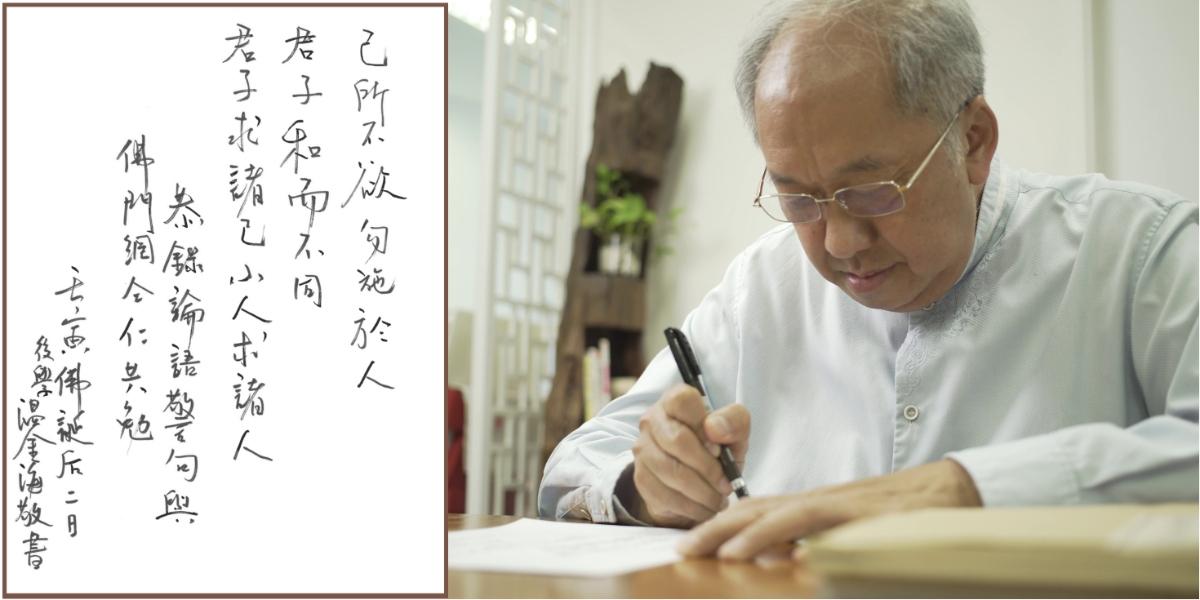 己所不欲勿施於人
君子和而不同
君子求諸己小人求諸人
恭錄論語警句與
佛門網仝仁共勉
壬寅佛誕后二日
後學温金海敬書